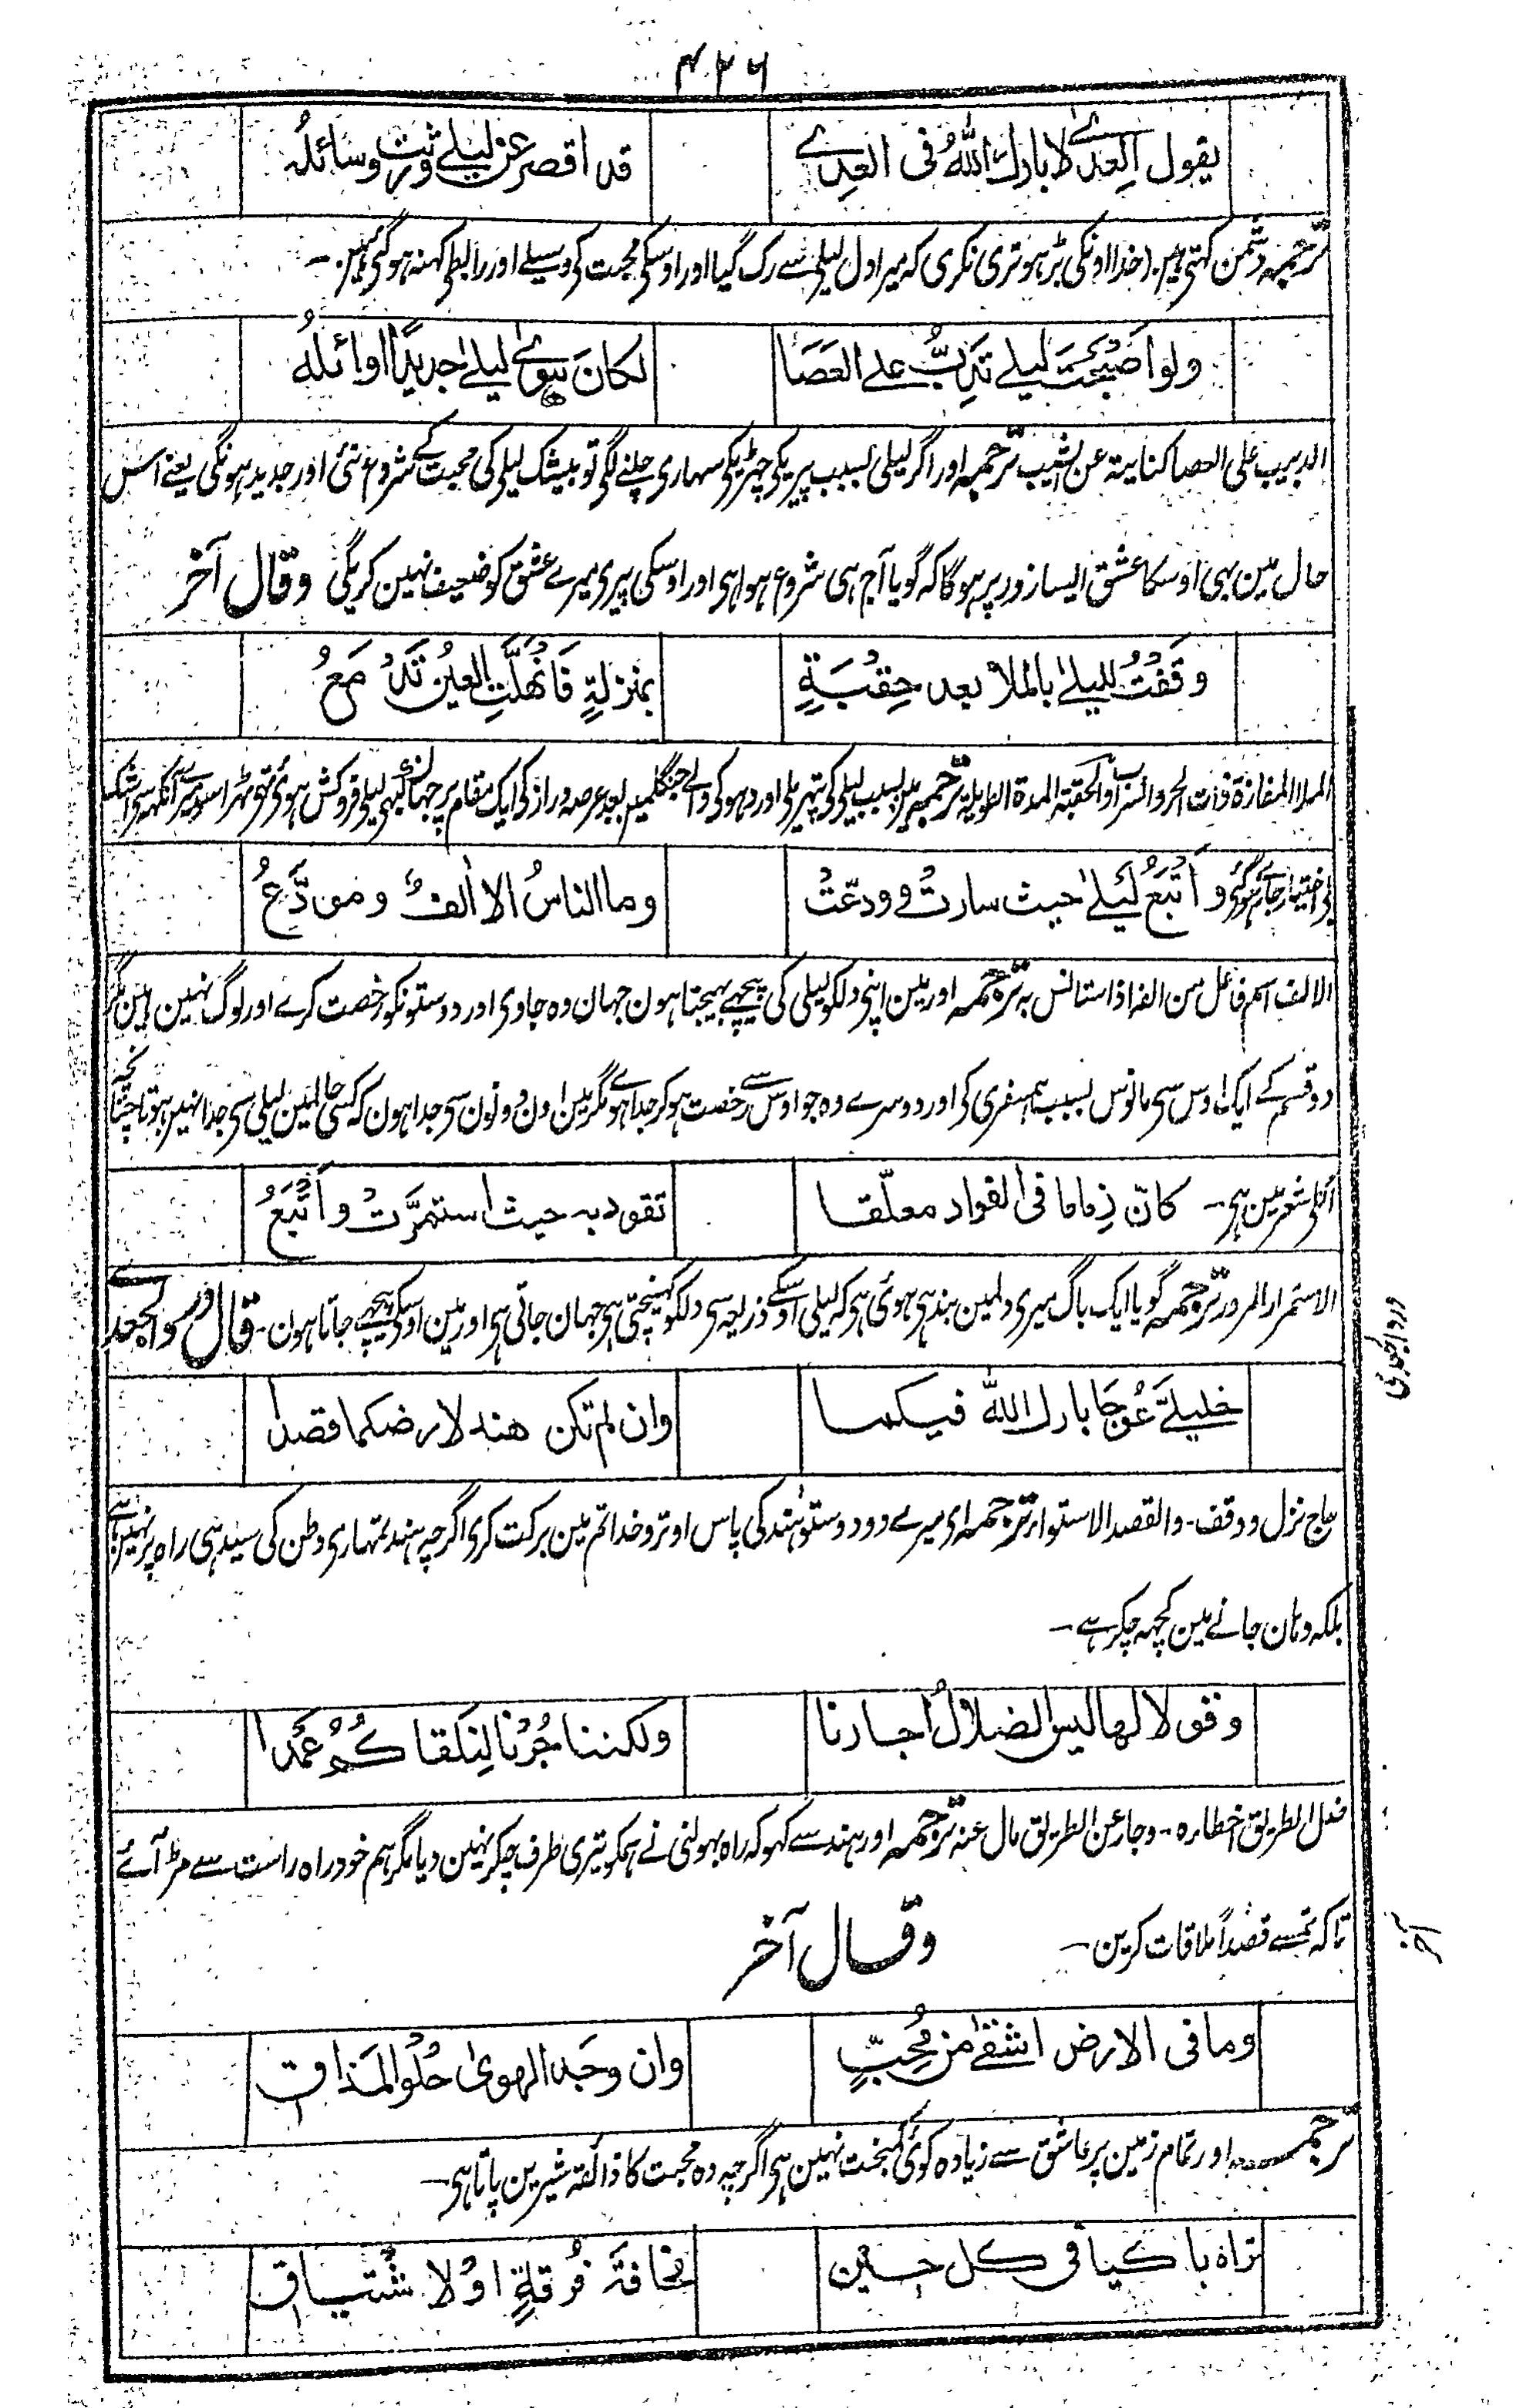 ۴۲۶
يقول العدے لا بارك اللهُ فى العِدے قد اقصر عن ليلے ورثت وسائلُه
ترجمہ دشمن کہتی ہین (خدا اونکی بڑہوتری نکری کہ میرا دل لیلی سے رک گیا اور اوسکی محبت کی وسیلے اور رابطی کہنہ ہوگئی ہین۔
ولو اصبحت ليلے تدِبُّ علے العَصَا لكانَ هوے ليلےٰ جديدًا اوائلهُ
الدبیب علی العصا کنایۃ عن الشیب ترجمہ اور اگر لیلی بسبب پیریکی چہڑیکی سہاری چلنے لگی تو بیشک لیلی کی محبت کے شروع نئی اور جدید ہونگی یعنے اس
حال مین بہی اوسکا عشق ایسا زور پر ہوگا کہ گویا آج ہی شروع ہوا ہی اور اوسکی پیری میرے عشق کو ضعیف نہین کریگی وقال آخر
وقَفْتُ لليلےٰ بالملا بعد حِقْبَةٍ بمنزلةٍ فَانْهَلَّتِ العينُ تَدْمَعُ
الملا المفازۃ ذات الحر والسراب والحقبۃ المدۃ الطویلۃ ترجمہ مین بسبب لیلی کی تپہریلی اور دہوکی والے جنگلمین بعد عرصہ دراز کی ایک مقام پر جہان کبہی لیلی فروکش ہوئی تہی ٹہرا سو میرے آنکہہ سی اشک
بی اختیار جاری ہوگئی وأتْبَعُ ليلےٰ حيث سارتْ وودّعتْ وما الناسُ الا اٰلفٌ ومودَّعُ
الالف اسم فاعل من الفہ اذا استانس بہ ترجمہ اور مین اپنی دلکو لیلی کی پیچہے بہیجتا ہون جہان وہ جاوی اور دوستونکو رخصت کرے اور لوگ نہین ہین مگر
دو قسم کے ایک اوس سی مانوس بسبب ہمسفری کی اور دوسرے وہ جو اوس سے رخصت ہوکر جدا ہے مگر مین اون دونون سی جدا ہون کہ کسی حالمین لیلی سی جدا نہین ہوتا چنانچہ
اگلی شعر مین ہی۔ كانّ زِماما فى الفواد معلّقا تقود به حيث استمرَّت وأتْبَعُ
الاستمرار المرور ترجمہ گویا ایک باگ میری دلمین بندہی ہوئی ہی کہ لیلی اوسکے ذریعہ سی دلکو کہینچتی ہی جہان جاتی ہی اور مین اوسکی پیچہے جاتا ہون۔ قال ورد الجعدے
خليلےَّ عُوجَا بارك الله فيكما وان لم تكن هند لارضكما قصدا
عاج نزل ووقف۔ والقصد الاستواء ترجمہ ای میرے دو دوستو ہند کی پاس اوترو خدا تم مین برکت کری اگرچہ ہند تمہاری وطن کی سیدہی راہ پر نہین ہے
بلکہ وہان جانے مین کچہہ چکر ہے۔
وقولا لها ليس الضلالُ اجارنا ولكننا جُرْنا لِنلقاكُمُ عَمْدا
ضل الطریق اخطاءہ۔ وجار عن الطریق مال عنہ ترجمہ اور ہند سے کہو کہ راہ بہولنی نے ہمکو تیری طرف چکر نہین دیا مگر ہم خود راہ راست سے مڑ آئے
تاکہ تمسے قصداً ملاقات کرین۔ وقال آخر
وما فى الارض اشقےٰ من مُحِبٍّ وان وجَد الهوىٰ حُلْوَ المَذاق
ترجمہ اور تمام زمین پر عاشق سے زیادہ کوئی کمبخت نہین ہی اگرچہ وہ محبت کا ذائقہ شیرین پاتا ہی۔
تراه باكيا فى كل حين مخافةَ فُرقةٍ اوْ لاشْتياق
ورد الجعدی
آخر